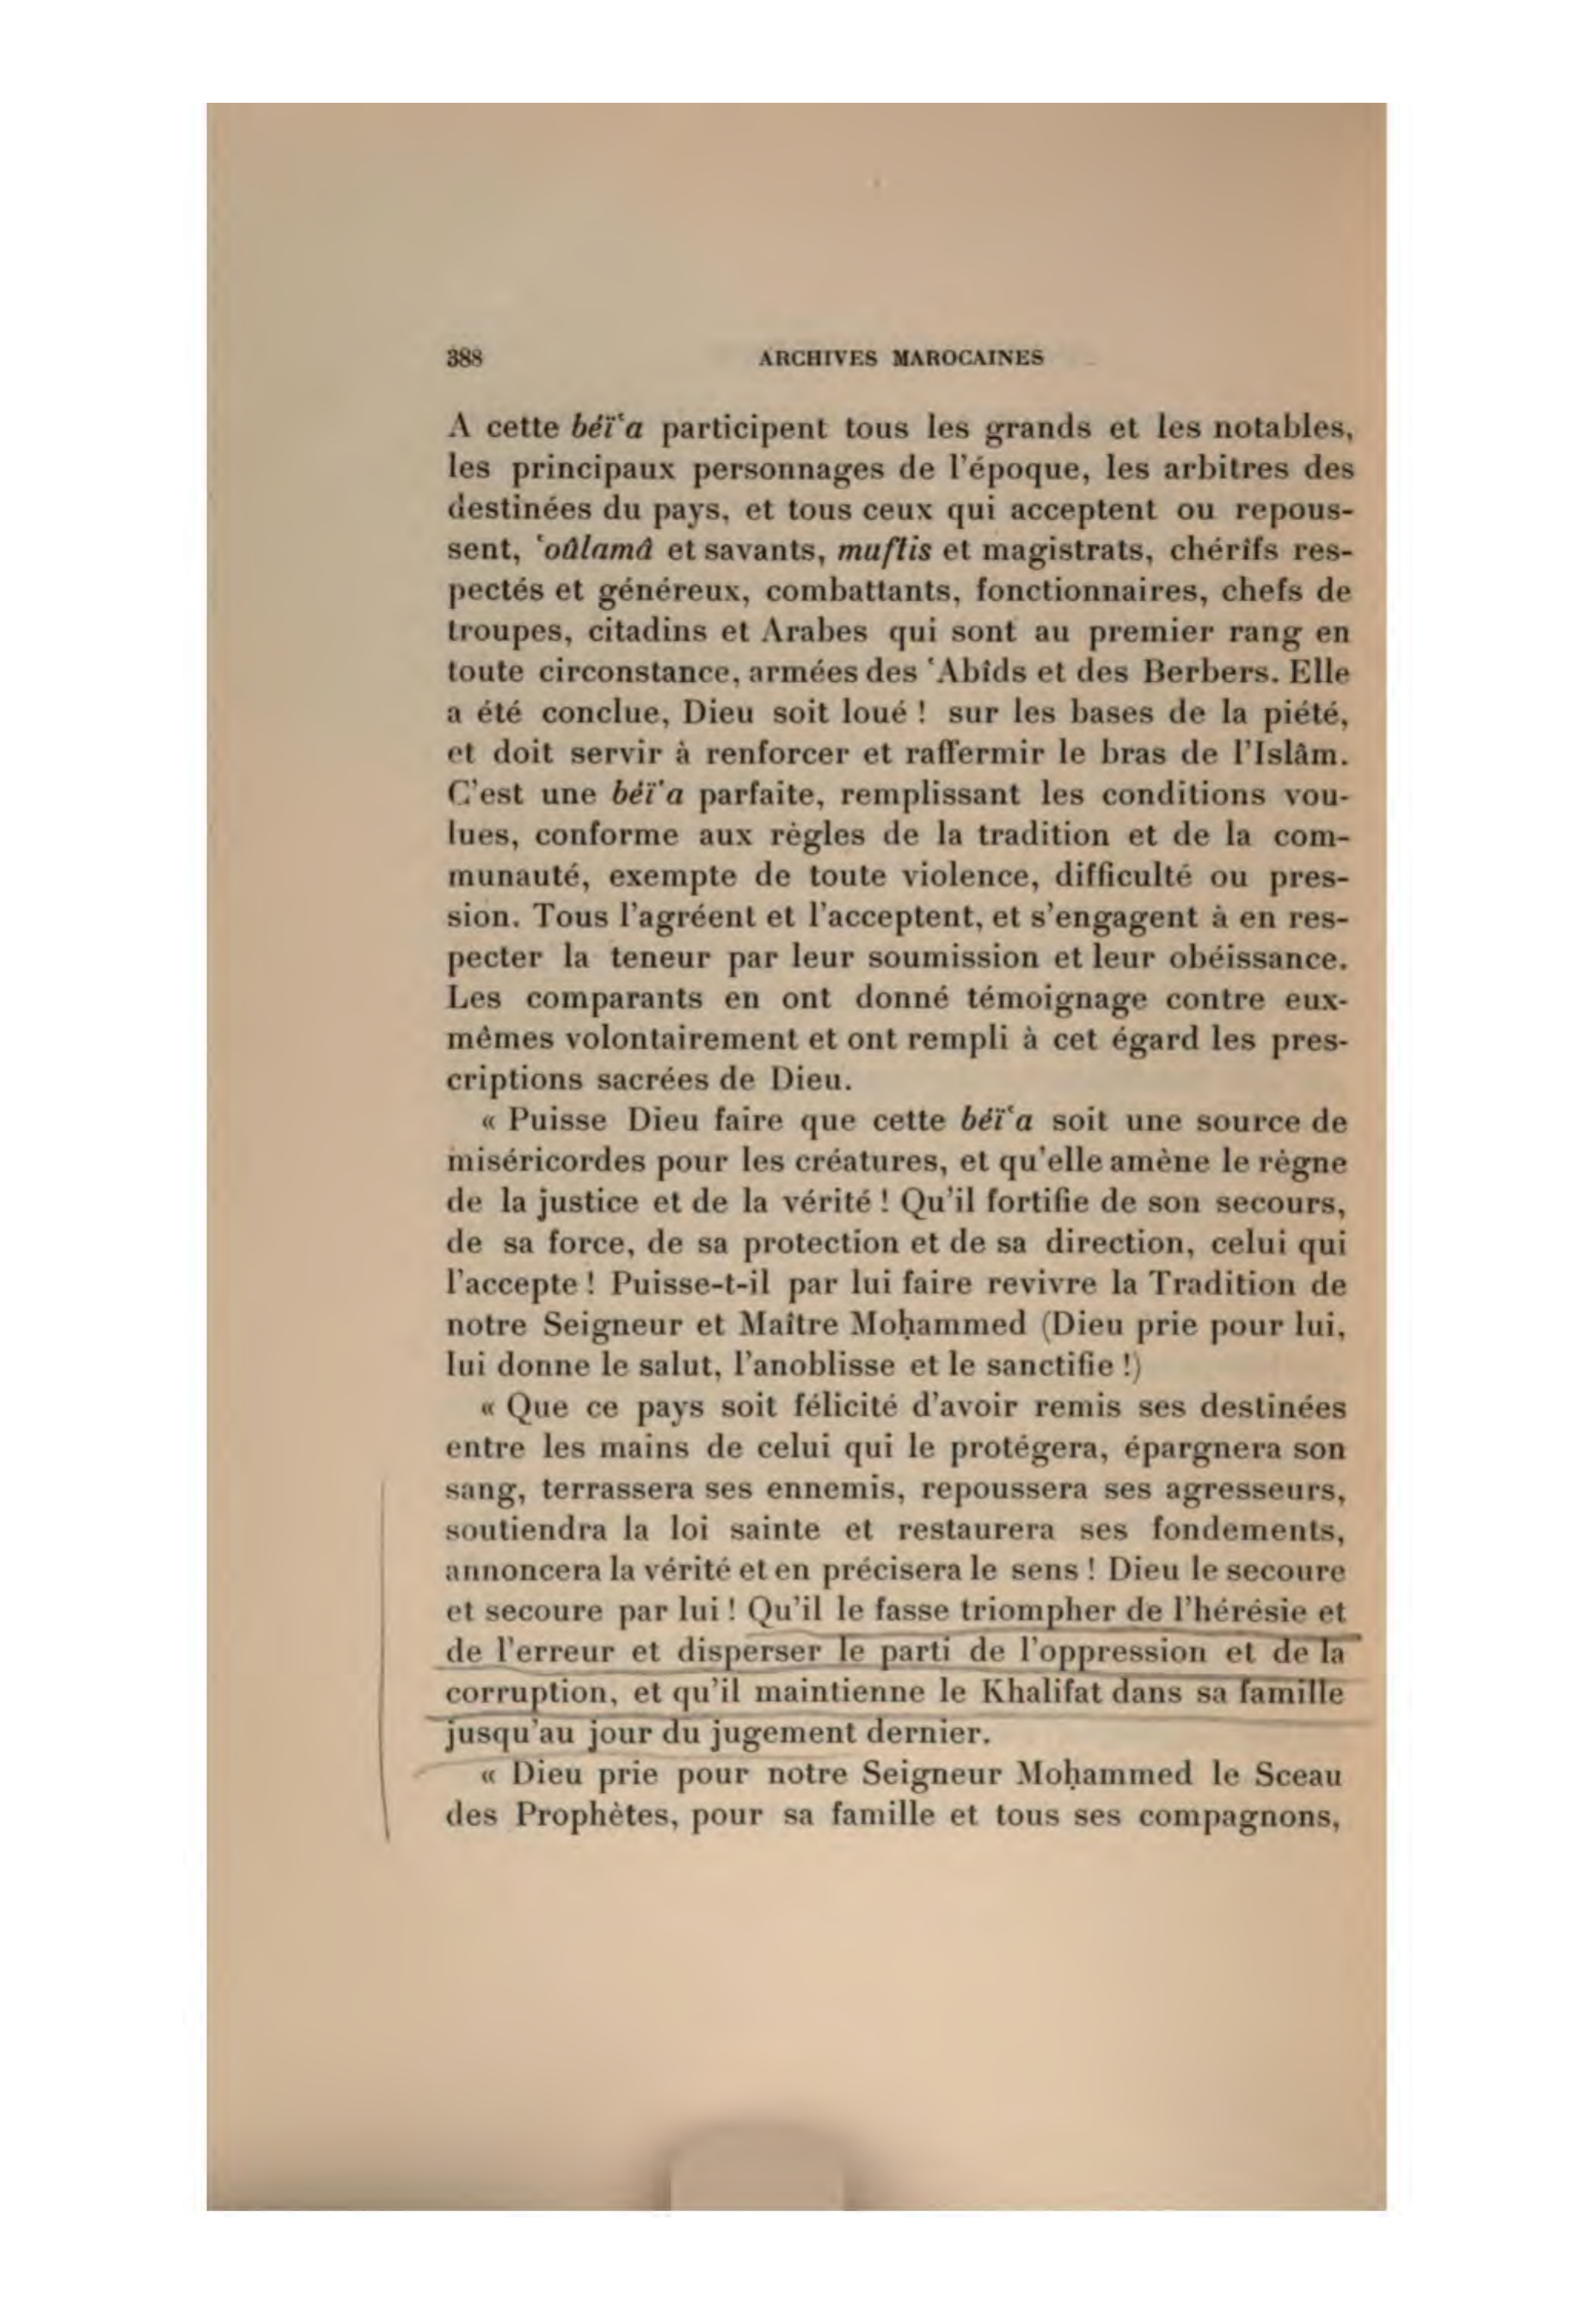 388
ARCHIVES MAROCAINES
A cette béï‘a participent tous les grands et les notables,
les principaux personnages de l'époque, les arbitres des
destinées du pays, et tous ceux qui acceptent ou repous-
sent, ‘oûlamâ et savants, muftis et magistrats, chérifs res-
pectés et généreux, combattants, fonctionnaires, chefs de
troupes, citadins et Arabes qui sont au premier rang en
toute circonstance, armées des ‘Abîds et des Berbers. Elle
a été conclue, Dieu soit loué ! sur les bases de la piété,
et doit servir à renforcer et raffermir le bras de l'Islâm.
C'est une béï‘a parfaite, remplissant les conditions vou-
lues, conforme aux règles de la tradition et de la com-
munauté, exempte de toute violence, difficulté ou pres-
sion. Tous l'agréent et l'acceptent, et s'engagent à en res-
pecter la teneur par leur soumission et leur obéissance.
Les comparants en ont donné témoignage contre eux-
mêmes volontairement et ont rempli à cet égard les pres-
criptions sacrées de Dieu.
« Puisse Dieu faire que cette béï‘a soit une source de
miséricordes pour les créatures, et qu'elle amène le règne
de la justice et de la vérité ! Qu'il fortifie de son secours,
de sa force, de sa protection et de sa direction, celui qui
l'accepte ! Puisse-t-il par lui faire revivre la Tradition de
notre Seigneur et Maître Moḥammed (Dieu prie pour lui,
lui donne le salut, l'anoblisse et le sanctifie !)
« Que ce pays soit félicité d'avoir remis ses destinées
entre les mains de celui qui le protégera, épargnera son
sang, terrassera ses ennemis, repoussera ses agresseurs,
soutiendra la loi sainte et restaurera ses fondements,
annoncera la vérité et en précisera le sens ! Dieu le secoure
et secoure par lui ! Qu'il le fasse triompher de l'hérésie et
de l'erreur et disperser le parti de l'oppression et de la
corruption, et qu'il maintienne le Khalifat dans sa famille
jusqu'au jour du jugement dernier.
« Dieu prie pour notre Seigneur Moḥammed le Sceau
des Prophètes, pour sa famille et tous ses compagnons,